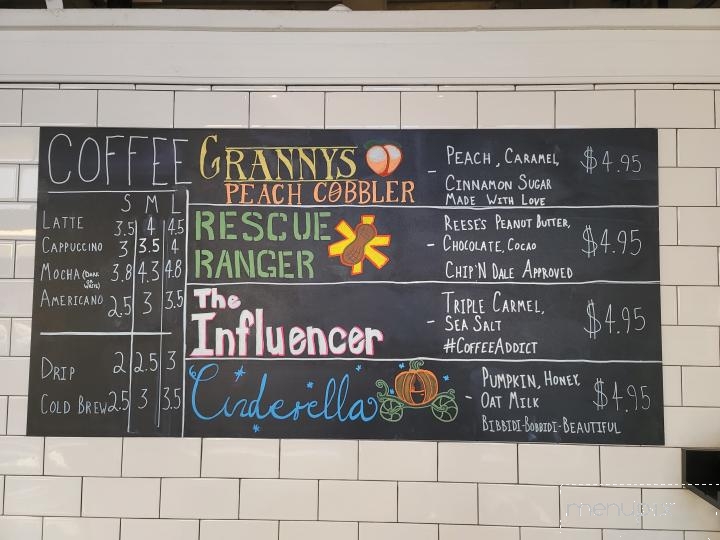 COFFEE
S M L
LATTE 3.5 4 4.5
CAPPUCCINO 3 3.5 4
MOCHA (DARK OR WHITE) 3.8 4.3 4.8
AMERICANO 2.5 3 3.5
DRIP 2 2.5 3
COLD BREW 2.5 3 3.5
GRANNYS
PEACH COBBLER
- PEACH, CARAMEL,
CINNAMON SUGAR
MADE WITH LOVE
$4.95
RESCUE
RANGER
REESE'S PEANUT BUTTER,
- CHOCOLATE, COCAO
CHIP'N DALE APPROVED
$4.95
The
Influencer
TRIPLE CARMEL,
- SEA SALT
#COFFEEADDICT
$4.95
Cinderella
- PUMPKIN, HONEY,
OAT MILK
BIBBIDI-BOBBIDI-BEAUTIFUL
$4.95